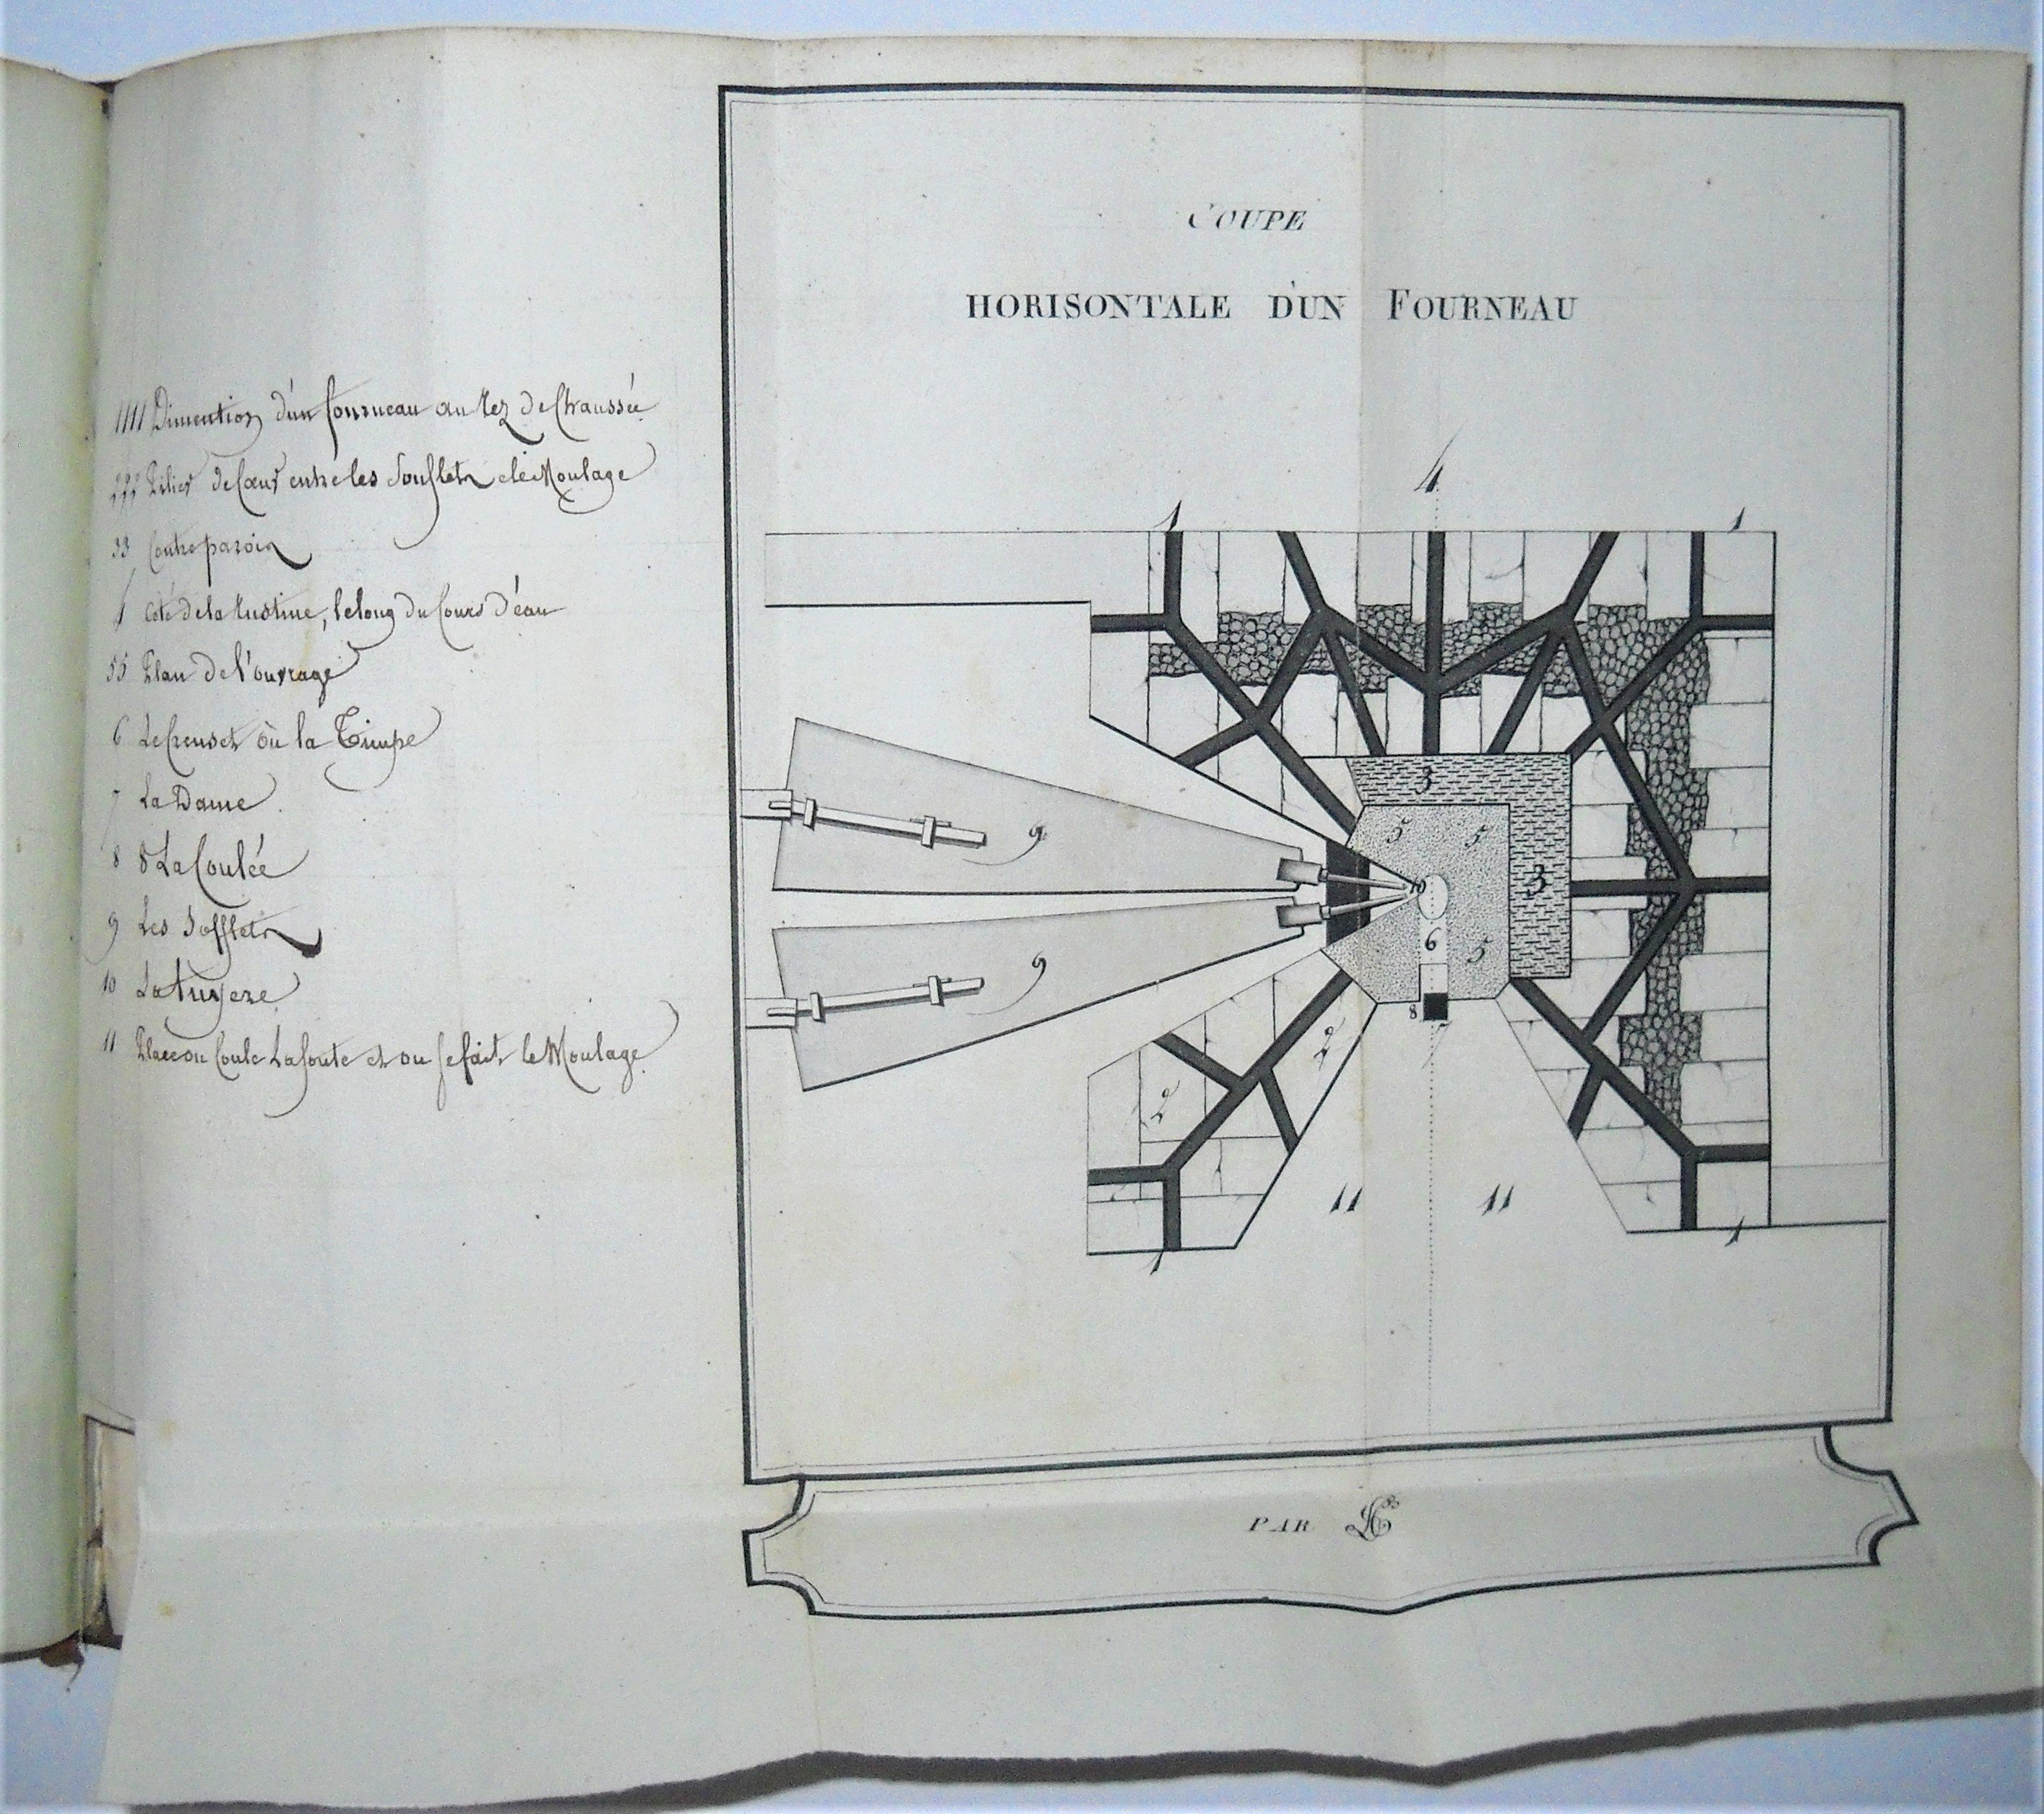 1111 Dimention d'un fourneau au Rez de Chaussée
222 Pilier de Cœur entre les Soufflets et le Moulage
33 Contreparois
4 Coté de la Rustine, le long du Cours d'éau
55 Plan de l'ouvrage
6 Le Creuset où la Timpe
7 La Dame
8 8 La Coulée
9 Les Sofflets
10 La tuyere
11 Place ou Coule La fonte et ou se fait le Moulage
COUPE
HORISONTALE D'UN FOURNEAU
4
1 1
3
5 5
9 10 3
6 5
9 8
2
2
11 11
1 1
PAR